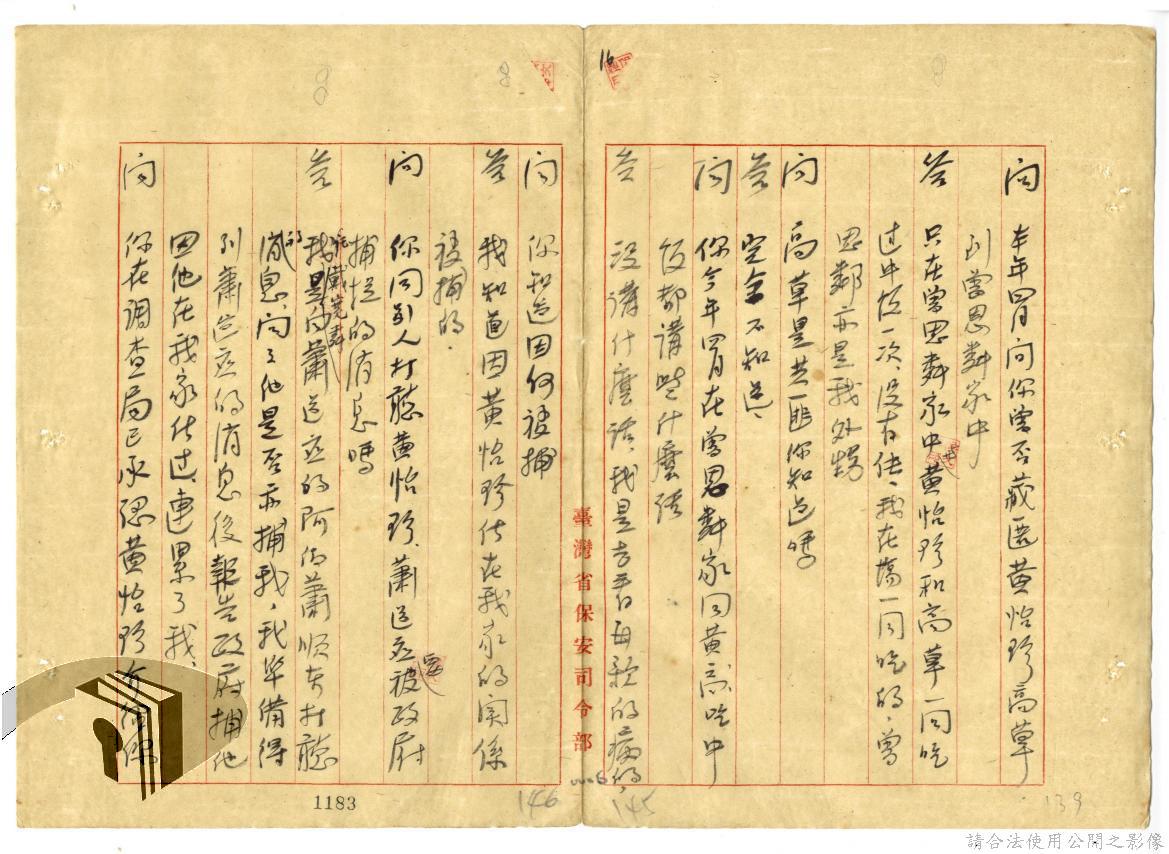 16
問 本年四月間你曾否藏匿黃怡珍高草
到曾思粦家中
答 只在曾思粦家中黃怡珍和高草一同吃
过中飯一次、沒有住、我在場一同吃的、曾
思鄰亦是我外甥
問 高草是共匪你知道嗎
答 完全不知道、
問 你今年四月在曾思粦家同黃高吃中
飯都講些什麼話
答 沒講什麼話、我是去看母親的病的、
臺灣省保安司令部
問 你知道因何被捕
答 我知道因黃怡珍住在我家的関係
被捕的、
問 你同別人打聽黃怡珍、蕭道应被政府
捕捉的消息嗎
答 我是向蕭道应的阿伯蕭順安打聽
消息、問了他是否亦捕我、我準備得
到蕭道应的消息後報告政府捕他
因他在我家住过、連累了我、
問 你在調查局已承認黃怡珍
1183
146
145
139
請合法使用公開之影像